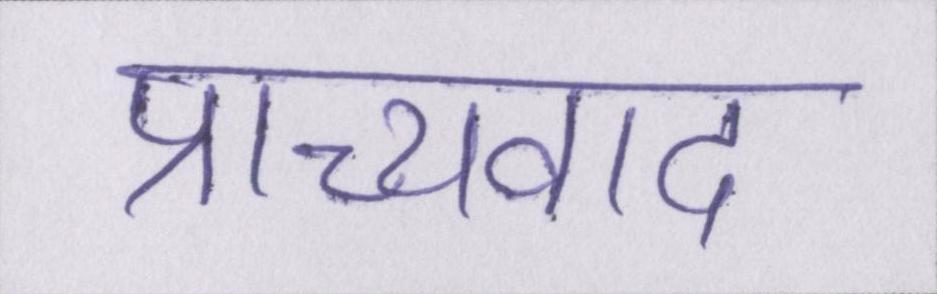 प्राच्यवाद